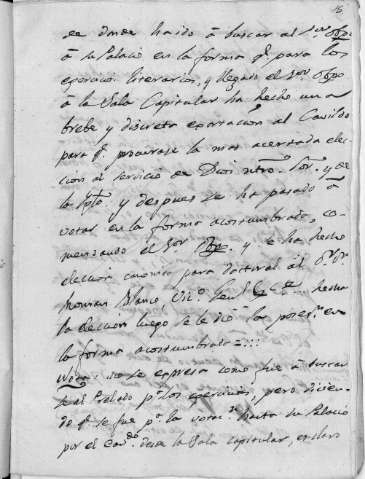 de donde ha ido á buscar al Sor. Obpo
á su Palacio en la forma q.e para los
exercicios literarios, y llegado el Sor. Obpo
á la Sala Capitular ha hecho una
brebe y discreta exortacion al Cavildo
para q.e procurase la mas acertada elec-
cion al servicio de Dios ntro. Sor. y de
la Ygla. y despues se ha pasado á
votar en la forma acostumbrada, co-
menzando el Sor Obpo. y se ha hecho
eleccion canonica para doctoral al Sr. Dr.
Blanco Vic.o Gen.l &c.a hecha
la eleccion luego se le dió la poses.n en
la forma acostumbrada
Nota: no se expresa como fue á buscar
se al Prelado p.a los exercicios, pero dicien-
do q.e se fue p.a la votac.n hasta su Palacio
por el Cav.do desde la Sala Capitular, es claro